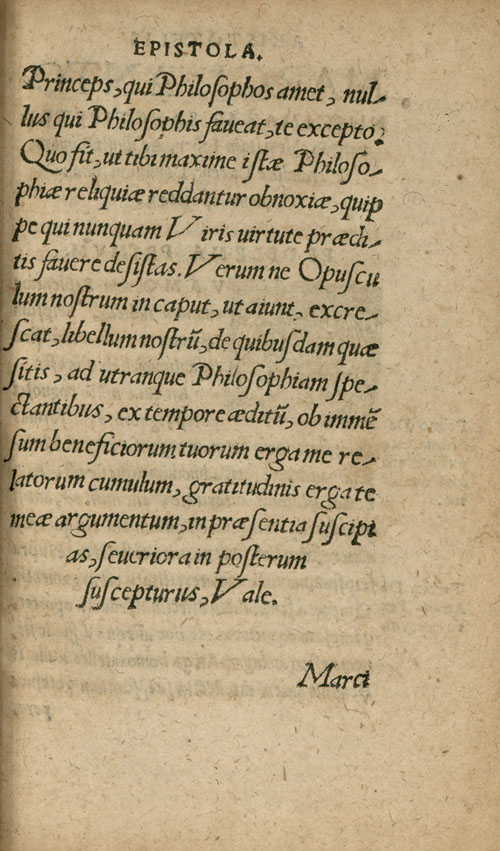 EPISTOLA.
Princeps, qui Philosophos amet, nul-
lus qui Philosophis faueat, te excepto:
Quo fit, ut tibi maxime istæ Philoso-
phiæ reliquiæ reddantur obnoxiæ, quip
pe qui nunquam Viris uirtute prædi-
tis fauere desistas. Verum ne Opuscu
lum nostrum in caput, ut aiunt, excre-
scat, libellum nostrũ, de quibusdam quæ
sitis, ad utranque Philosophiam spe-
ctantibus, ex tempore æditũ, ob immẽ
sum beneficiorum tuorum erga me re-
latorum cumulum, gratitudinis erga te
meæ argumentum, in præsentia suscipi
as, seueriora in posterum
suscepturus, Vale.
Marci